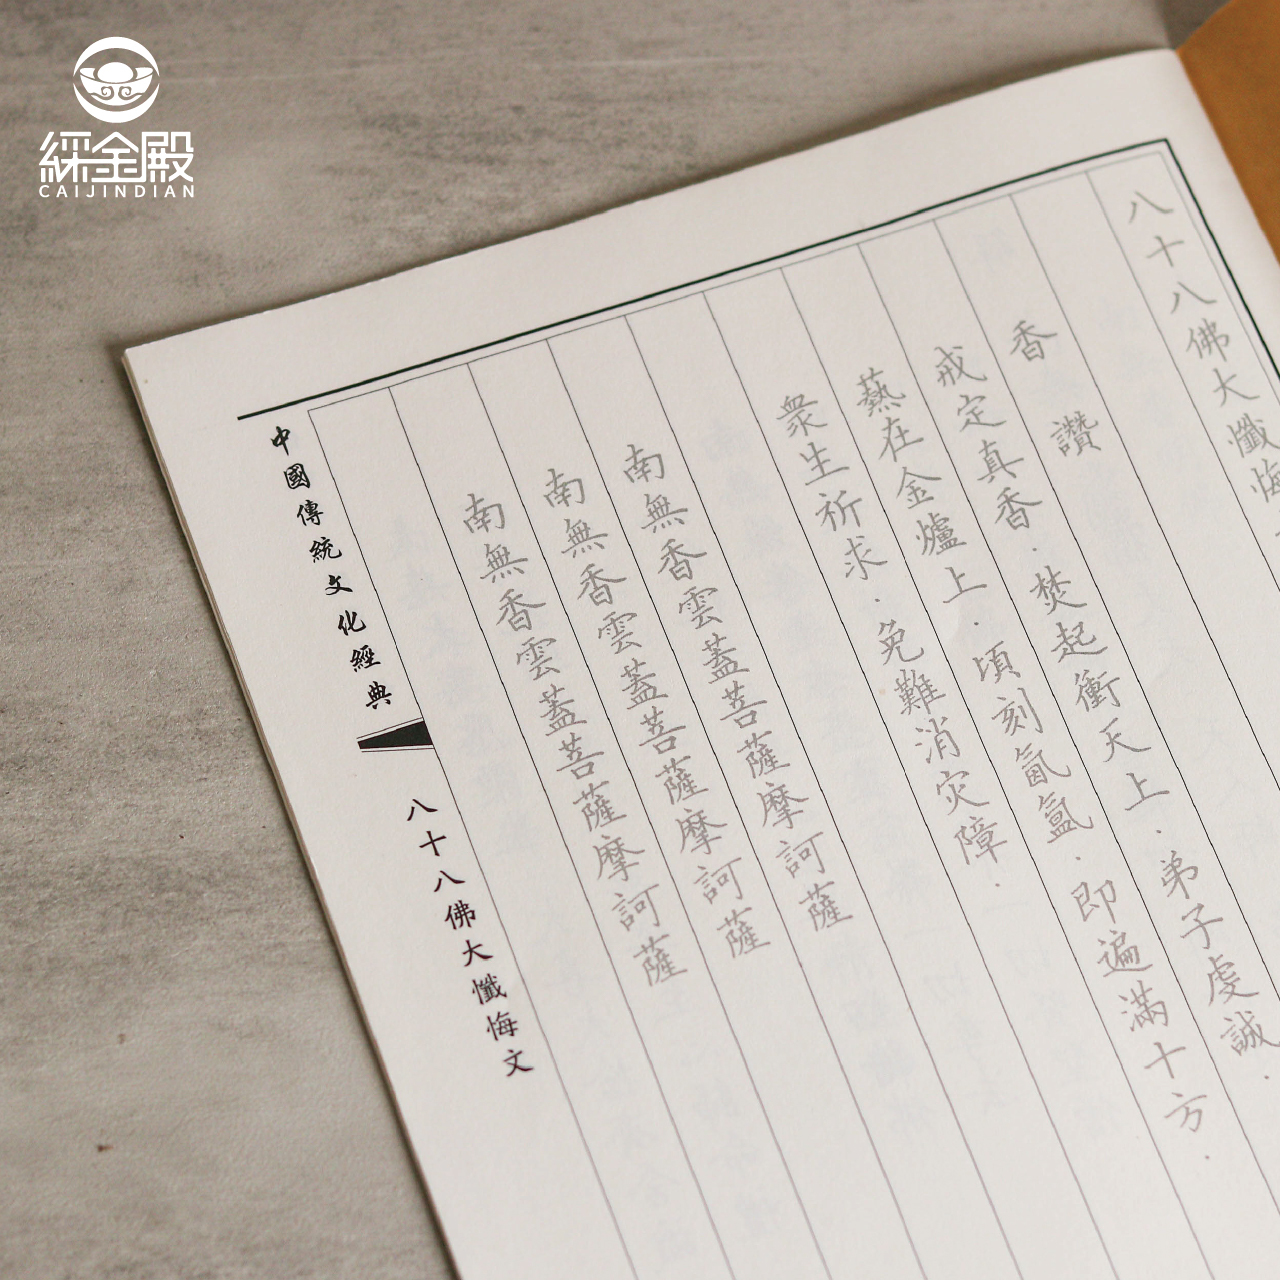 綵金殿
CAIJINDIAN
八十八佛大懺悔
香 讚
戒定真香．焚起衝天上．弟子虔誠．
爇在金爐上．頃刻氤氳．即遍滿十方．
眾生祈求．免難消灾障．
南無香雲蓋菩薩摩訶薩
南無香雲蓋菩薩摩訶薩
南無香雲蓋菩薩摩訶薩
中國傳統文化經典
八十八佛大懺悔文